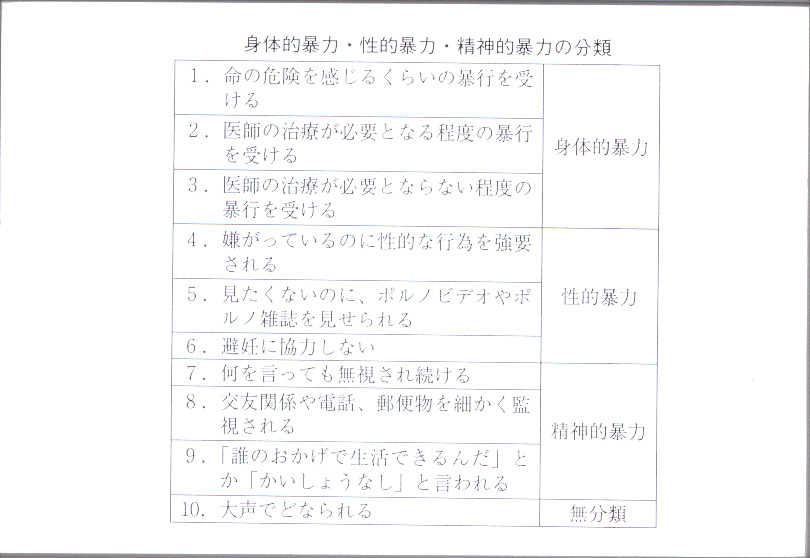 身体的暴力・性的暴力・精神的暴力の分類
1．命の危険を感じるくらいの暴行を受
ける
2．医師の治療が必要となる程度の暴行
を受ける
3．医師の治療が必要とならない程度の
暴行を受ける
身体的暴力
4．嫌がっているのに性的な行為を強要
される
5．見たくないのに、ポルノビデオやポ
ルノ雑誌を見せられる
6．避妊に協力しない
性的暴力
7．何を言っても無視され続ける
8．交友関係や電話、郵便物を細かく監
視される
9．「誰のおかげで生活できるんだ」と
か「かいしょうなし」と言われる
精神的暴力
10．大声でどなられる
無分類